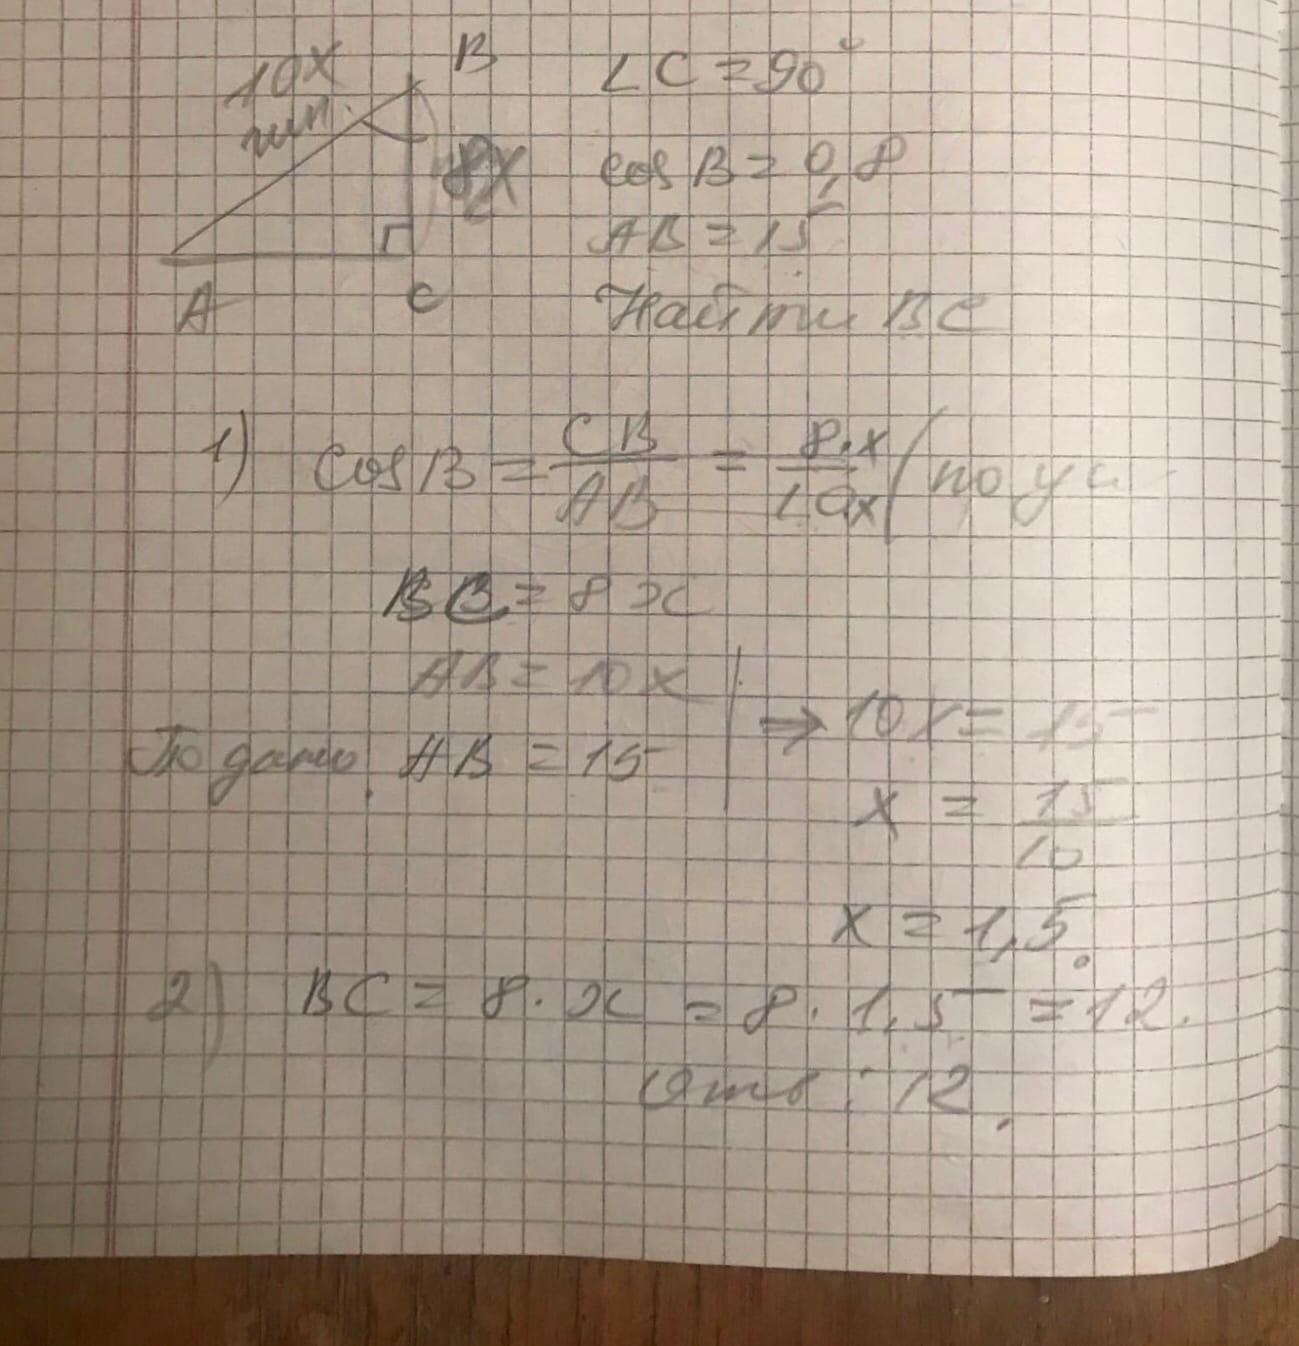 10x
гип.
B
8x
A
C
∠C = 90°
cos B = 0,8
AB = 15
Найти BC
1) cos B = CB/AB = 8·x/10x (по ус
BC = 8x
AB = 10x
По дано, AB = 15
⇒ 10x = 15
x = 15/10
x = 1,5.
2) BC = 8·x = 8·1,5 = 12.
Отв: 12.